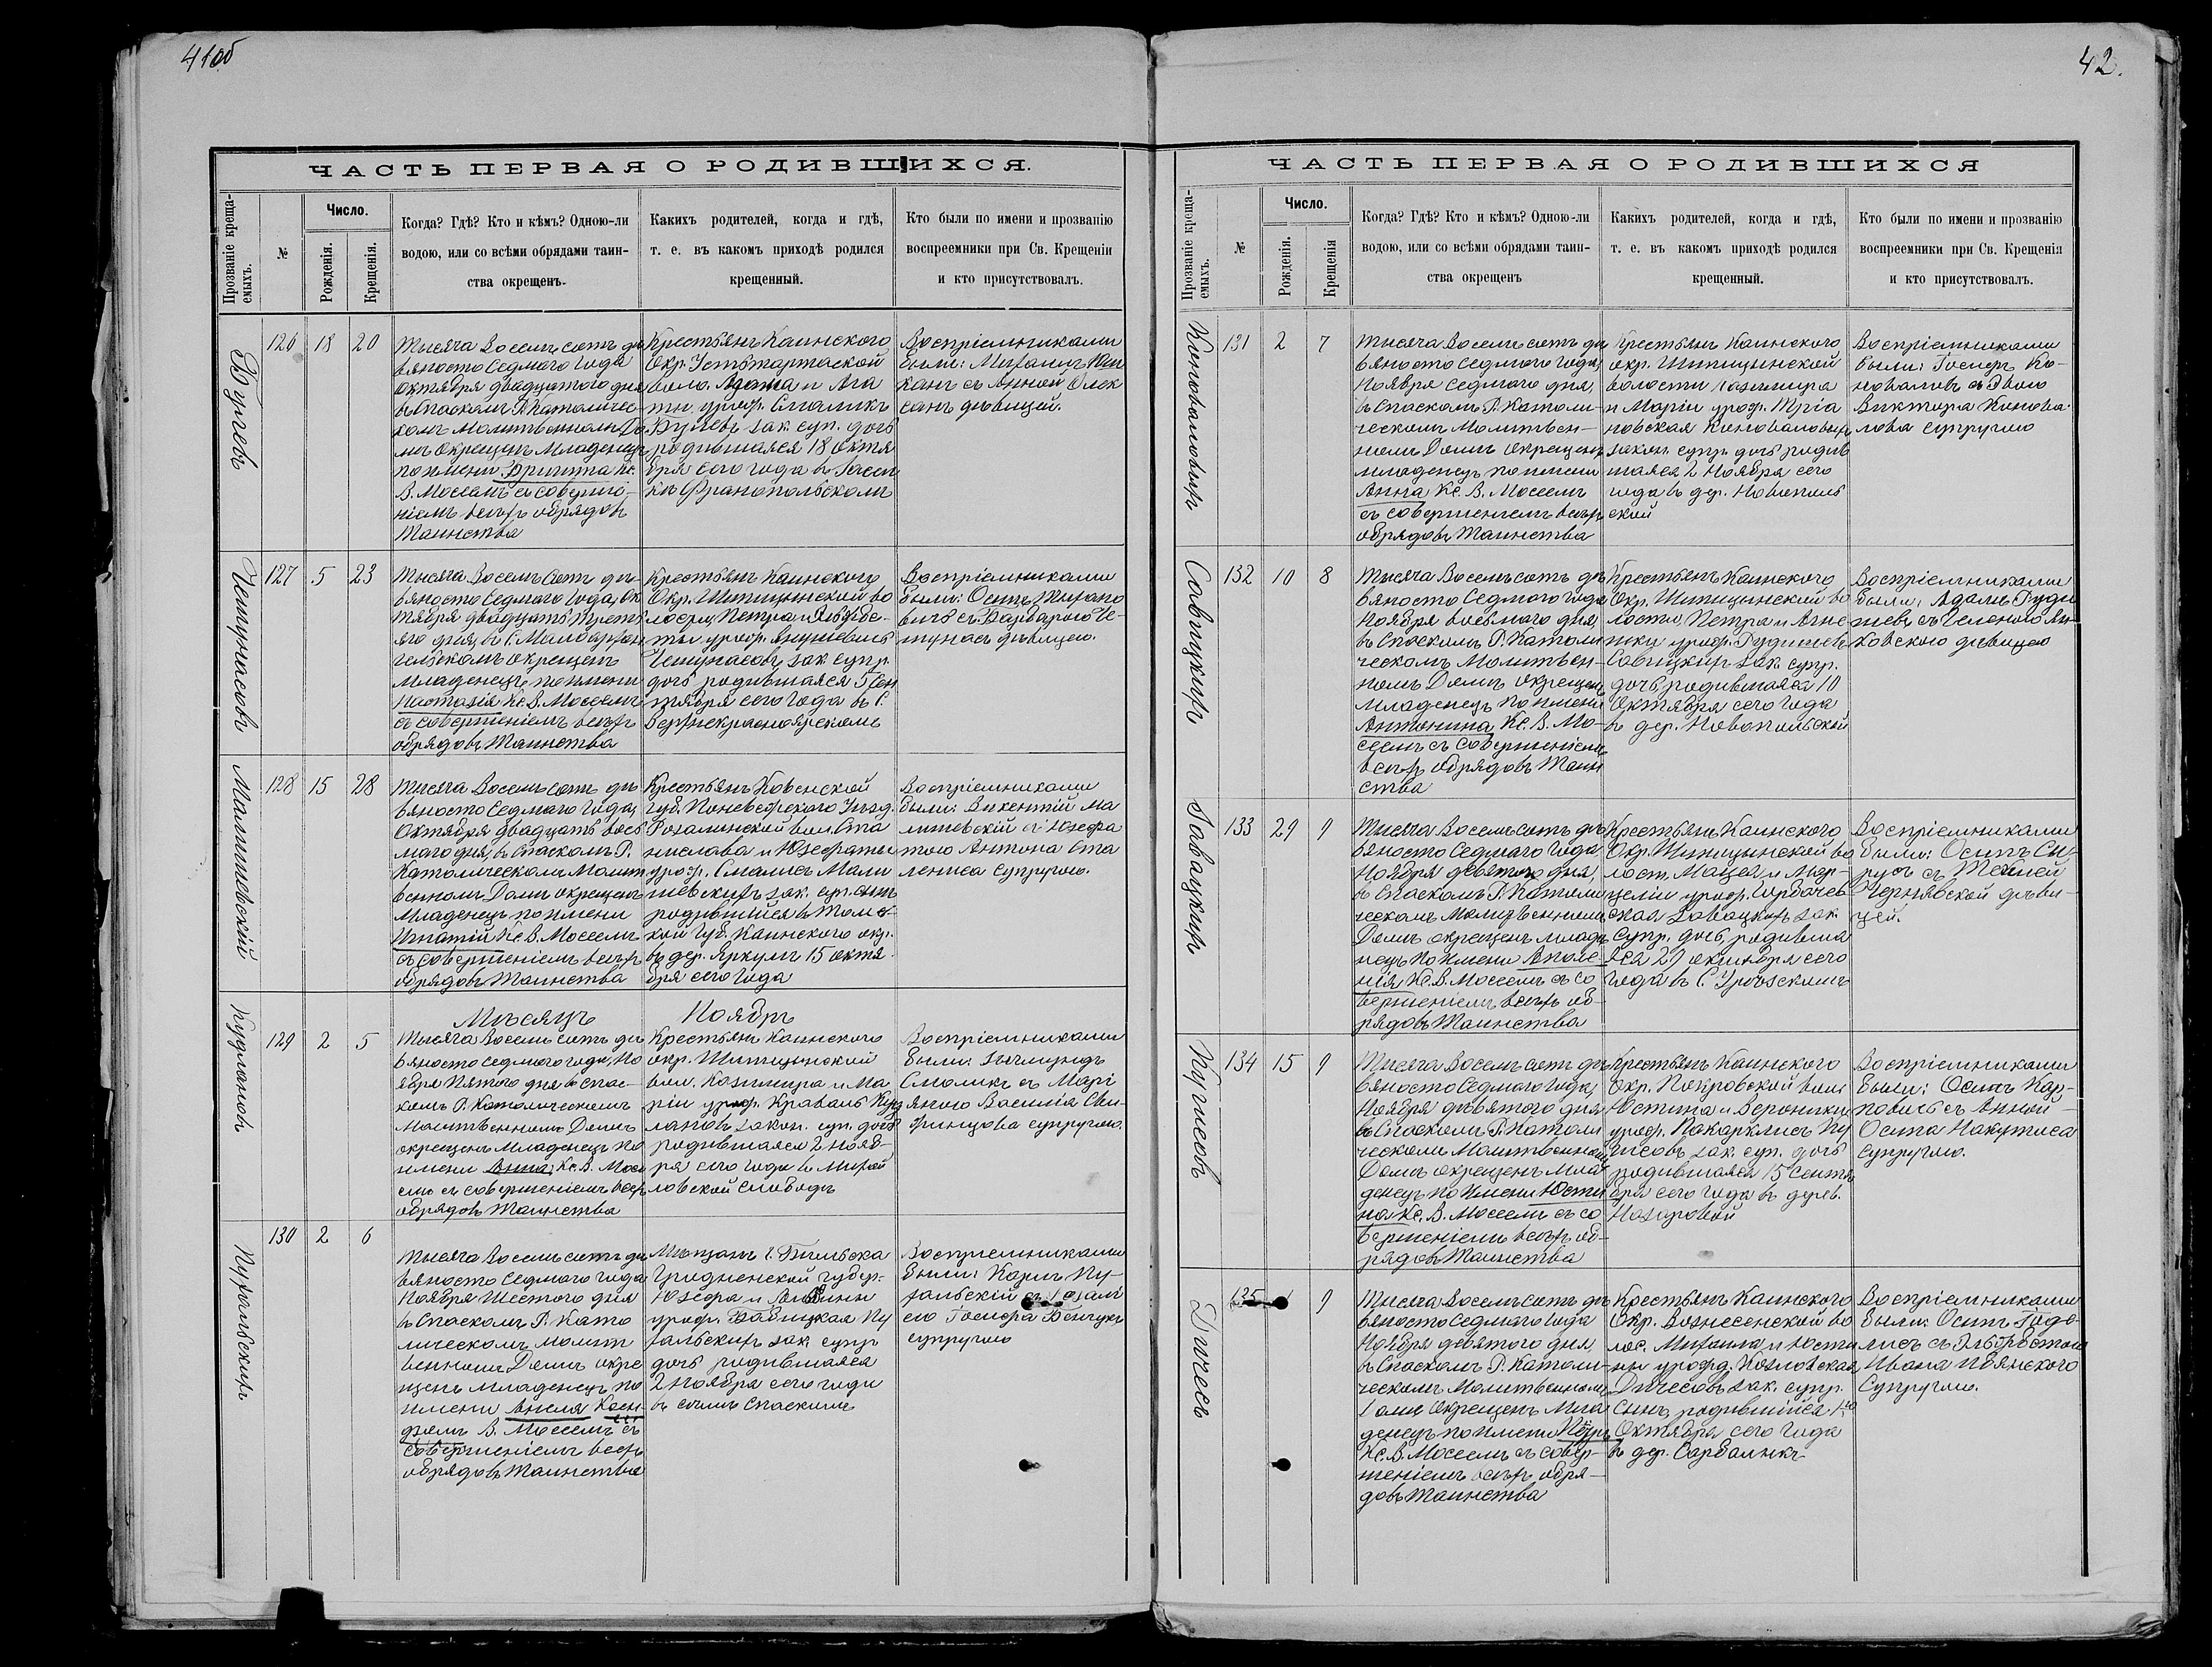 41об
ЧАСТЬ ПЕРВАЯ О РОДИВШИХСЯ.
Прозваніе креща-
емыхъ.
№
Число.
Рожденія.
Крещенія.
Когда? Гдѣ? Кто и кѣмъ? Одною-ли
водою, или со всѣми обрядами таин-
ства окрещенъ.
Какихъ родителей, когда и гдѣ,
т. е. въ какомъ приходѣ родился
крещенный.
Кто были по имени и прозванію
воспреемники при Св. Крещеніи
и кто присутствовалъ.
126 18 20
Тысяча Восемьсотъ де
вяносто Седмого Года
Октября двадцатого дня
въ Спаскомъ Р. Католичес-
комъ Молитвенномъ До
мѣ Окрещенъ Младенецъ
по имени Бригита Кс.
В. Моссемъ съ соверше-
ніемъ всѣхъ обрядовъ
Таинства
Крестьянъ Каинского
Окр. Устьтартаской
воло. Адама и Ага
ты урож. Смаликъ
зак. суп. дочь
родившаяся 18 октя
бря сего года въ
Воспріемниками
были: Михаилъ
съ Анной Олек
дѣвицей.
Чепунасовъ
127 5 23
Тысяча Восемьсотъ де-
вяносто Седмаго Года, Ок
тября двадцать трет
яго дня, въ С.
окрещенъ
Младенецъ по имени
Настазія Кс. В. Моссемъ
съ совершеніемъ всѣхъ
обрядовъ Таинства
Крестьянъ Каинского
Окр. Шипицынской во
лости Петра и Елизаве-
ты урож. Янушевичъ
Чепунасовъ зак супр.
дочь родившаяся 5 Сен
тября сего Года въ С.
Верхнекрасноярскомъ
Воспріемниками
были: Осипъ
съ Барбарою Че-
пунасъ дѣвицею.
Малишевскій
128 15 28
Тысяча Восемьсотъ де
вяносто Седмаго Года,
Октября двадцать вось
маго дня, въ Спаскомъ Р.
Католическомъ Молит
венномъ Домѣ окрещенъ
Младенецъ по имени
Игнатій Кс В. Моссемъ
съ совершеніемъ всѣхъ
обрядовъ Таинства
Крестьянъ Ковенской
Губ. Поневежского Уѣзд.
Розалинской вол. Ста
нислава и Юзефаты
урож. Смалисъ Мали
шевскихъ зак. суп. сынъ
родившійся въ Томс-
кой Губ. Каинского окр.
въ дер. Яркуль 15 октя
бря сего года
Воспріемниками
были: Викентій Ма
лишевскій съ Юзефа
тою Антона Ста
лениса супругою.
Мѣсяцъ Ноябрь
129 2 5
Тысяча Восемьсотъ де
вяносто седмого года, Но
ября Пятого дня въ Спас-
комъ Р. Католическомъ
Молитвенномъ Домѣ
окрещенъ Младенецъ по
имени Анна, Кс. В. Мосс
емъ съ совершеніемъ всѣхъ
обрядовъ Таинства
Крестьянъ Каинского
окр. Шипицынской
вол. Казимира и Ма
ріи урож. Краваль
закон. суп. дочь
родившаяся 2 Нояб-
ря сего Года въ
ловской слободѣ
Воспріемниками
были: Зигмундъ
Смоликъ съ Марі
яною Василія
супругою.
130 2 6
Тысяча Восемьсотъ де
вяносто Седмого года
Ноября Шестого дня
въ Спаскомъ Р. Като
лическомъ молит
венномъ Домѣ окре
щенъ младенецъ по
имени Анеля Ксен
дземъ В. Моссемъ съ
совершеніемъ всѣхъ
обрядовъ Таинства
Мѣщанъ г. Бѣльска
Гродненской губер.
Юзефа и
урож. Бавицкая Пу
хальскихъ зак. супр
дочь родившаяся
2 Ноября сего года
въ селѣ Спаскомъ
Воспріемниками
были: Карлъ Пу-
хальскій съ
ею Іосифа
супругою
Пухальскихъ
42.
ЧАСТЬ ПЕРВАЯ О РОДИВШИХСЯ
Прозваніе креща-
емыхъ.
№
Число.
Рожденія.
Крещенія
Когда? Гдѣ? Кто и кѣмъ? Одною-ли
водою, или со всѣми обрядами таин-
ства окрещенъ
Какихъ родителей, когда и гдѣ,
т. е. въ какомъ приходѣ родился
крещенный.
Кто были по имени и прозванію
воспреемники при Св. Крещенія
и кто присутствовалъ.
Коноваловыхъ
131 2 7
Тысяча Восемьсотъ де
вяносто седмого Года,
Ноября Седмого дня,
въ Спаскомъ Р. Католи-
ческомъ Молитвен-
номъ Домѣ окрещенъ
младенецъ по имени
Анна Кс. В. Моссемъ
съ совершеніемъ всѣхъ
обрядовъ Таинства
Крестьянъ Каинского
окр. Шипицынской
волости Казимира
и Маріи урож.
новская Коноваловыхъ
закон супр дочь родив
шаяся 2 Ноября сего
года въ дер. Новополь
ской
Воспріемниками
были: Іосифъ Ко-
новаловъ съ Евою
Виктора Конова
лова супругою
Савицкихъ
132 10 8
Тысяча Восемьсотъ де
вяносто Седмого Года
Ноября восьмого дня,
въ Спаскомъ Р. Католи
ческомъ Молитвен-
номъ Домѣ окрещенъ
младенецъ по имени
Антонина Кс. В. Мо-
ссемъ съ совершеніемъ
всѣхъ обрядовъ Таин
ства
Крестьянъ Каинского
Окр. Шипицынской во
лости Петра и Агне
шки урож.
Савицкихъ зак. супр.
дочь, родившаяся 10
Октября сего года
въ дер. Новопольской
Воспріемниками
были: Адамъ
съ Еленою
дѣвицею
Завацкихъ
133 29 9
Тысяча Восемьсотъ де
вяносто Седмаго Года,
Ноября девятого дня,
въ Спаскомъ Р. Католи
ческомъ Молитвенномъ
Домѣ окрещенъ младе
нецъ по имени Аполо-
нія, Кс. В. Моссемъ съ со
вершеніемъ всѣхъ об-
рядовъ Таинства
Крестьянъ Каинского
Окр. Шипицынской во
лост. Мацея и Мар-
целіи урож. Горбачев
ская Завацкихъ зак.
Супр. дочь, родивша
яся 29 октября сего
Года въ С.
Воспріемниками
были: Осипъ Сы-
русъ съ Теклей
Чернявской дѣви-
цей.
134 15 9
Тысяча Восемьсотъ де
вяносто Седмого Года,
Ноября девятого дня
въ Спаскомъ Р. Католи
ческомъ Молитвенномъ
Домѣ окрещенъ Мла
денецъ по имени Юсти
на Кс. В. Моссемъ съ со
вершеніемъ всѣхъ об-
рядовъ Таинства
Крестьянъ Каинского
Окр. Покровской воло
Юстина и Вероники
урож.
зак. суп. дочь
родившаяся 15 Сентя
бря сего Года въ дерев.
Назаровой
Воспріемниками
были: Осипъ Кар-
повичъ съ Анной
Осипа Накутиса
супругою.
135 1 9
Тысяча Восемьсотъ де
вяносто Седмого Года
Ноября девятого дня,
въ Спаскомъ Р. Католи-
ческомъ Молитвенномъ
Домѣ Окрещенъ Мла
денецъ по имени Пётръ
Кс. В. Моссемъ съ совер-
шеніемъ всѣхъ обря-
довъ Таинства
Крестьянъ Каинского
Окр. Вознесенской во
лос. Михаила и Юсти
ны урожд. Козловская
зак. супр.
сынъ, родившійся 1го
Октября сего Года
въ дер. Сарбалыкъ
Воспріемниками
были: Осипъ Годо-
лисъ съ Эльжбетою
Ивана
Супругою.